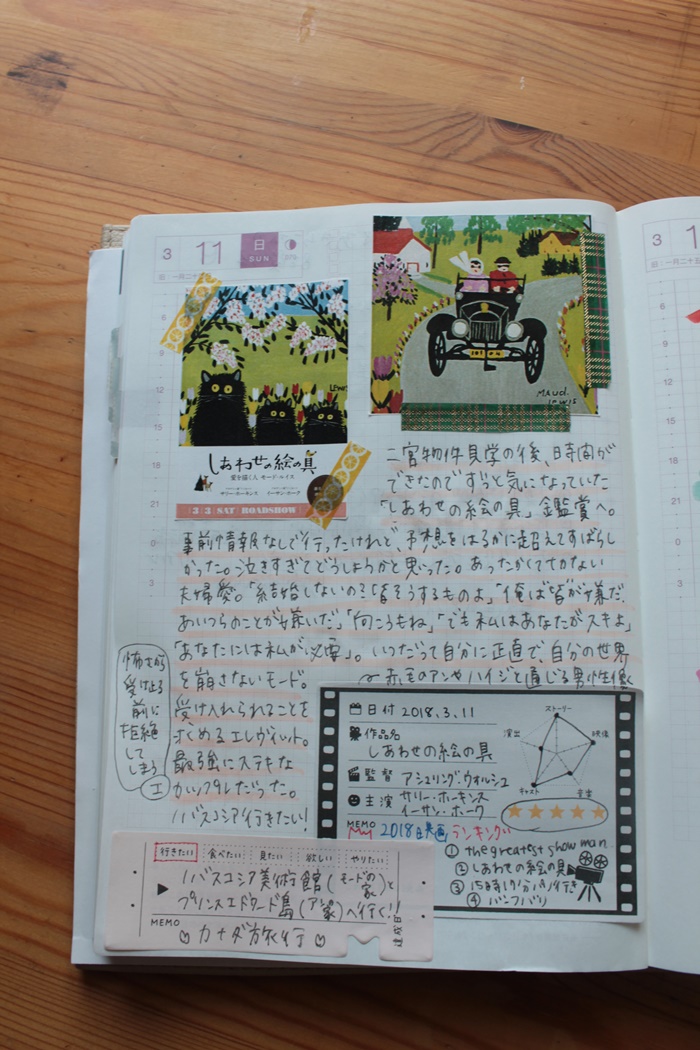 3 11 日
SUN
LEWIS
しあわせの絵の具
愛を描く人 モード・ルイス
サリー・ホーキンス イーサン・ホーク
3/3 SAT ROADSHOW
10104
MAUd.
LEWIS
二宮物件見学の後、時間が
できたのでずっと気になっていた
「しあわせの絵の具」鑑賞へ。
事前情報なしで行ったけれど、予想をはるかに超えてすばらし
かった。泣きすぎてどうしようかと思った。あったかくてせつない
夫婦愛。「結婚しないの?皆そうするものよ」「俺は皆が嫌だ。
あいつらのことが嫌いだ」「向こうもね」「でも私はあなたがスキよ」
「あなたには私が必要」。いつだって自分に正直で、自分の世界
を崩さないモード。
赤毛のアンやハイジと通じる男性像
受け入れられることを
求めるエレヴィット。
最強にステキな
カップルだった。
ノバスコシア行きたい!
怖さから
受け止る
前に
拒絶
して
しまう
エ
日付 2018.3.11
作品名
しあわせの絵の具
監督 アシュリング・ウォルシュ
主演 サリー・ホーキンス
イーサン・ホーク
ストーリー
演出
映像
キャスト
音楽
MEMO
2018映画ランキング
① the greatest showman
② しあわせの絵の具
③ 15時17分パリ行き
④
行きたい 食べたい 見たい 欲しい やりたい
ノバスコシア美術館(モードの家)と
プリンスエドワード島(アン家)へ行く!!
MEMO
♡ カナダ旅行 ♡
達成日
3 1